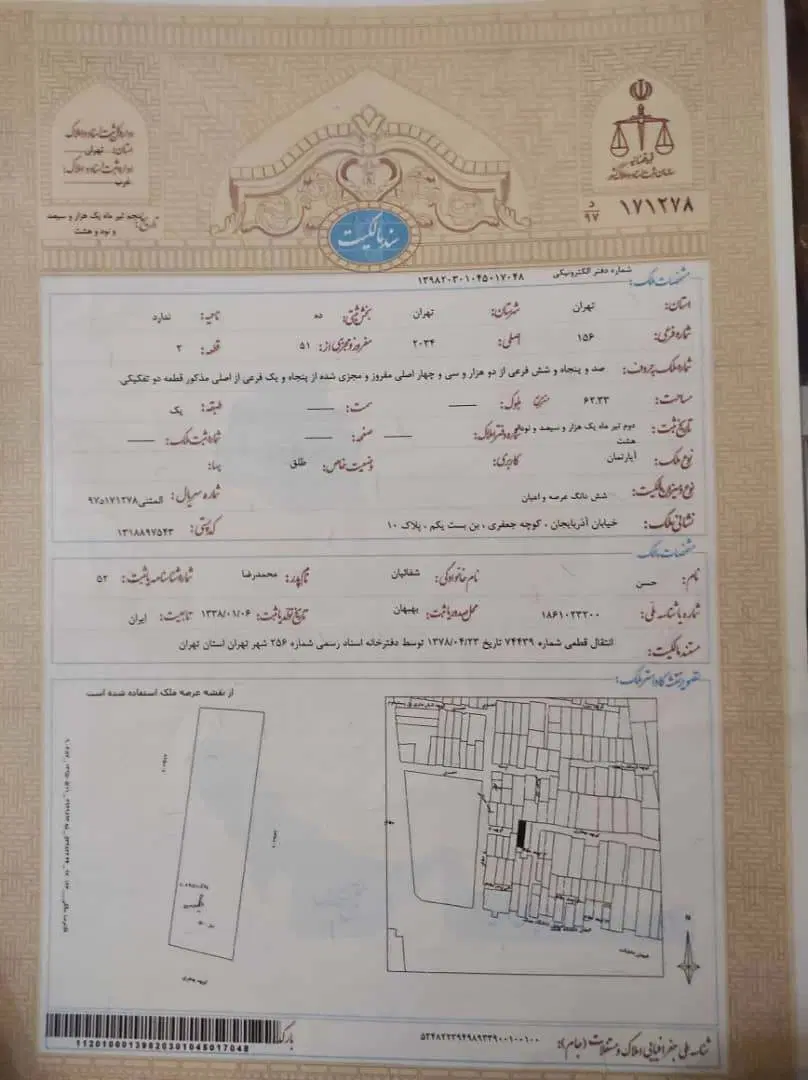 اداره کل ثبت اسناد و املاک
استان: تهران
اداره ثبت اسناد و املاک:
غرب
تاریخ: پنجم تیر ماه یک هزار و سیصد
و نود و هشت
قوه قضائیه
سازمان ثبت اسناد و املاک کشور
۱۷۱۲۷۸ د ۹۷
سند مالکیت
مشخصات ملک: شماره دفتر الکترونیکی ۱۳۹۸۲۰۳۰۱۰۴۵۰۱۷۰۴۸
استان: تهران شهرستان: تهران بخش ثبتی: ده ناحیه: ندارد
شماره فرعی: ۱۵۶ اصلی: ۲۰۳۴ مفروز و مجزی از: ۵۱ قطعه: ۲
شماره ملک به حروف: صد و پنجاه و شش فرعی از دو هزار و سی و چهار اصلی مفروز و مجزی شده از پنجاه و یک فرعی از اصلی مذکور قطعه دو تفکیکی.
مساحت: ۶۲.۳۳ مترمربع بلوک: —— سمت: —— طبقه: یک
تاریخ ثبت: دوم تیر ماه یک هزار و سیصد و نود و هشت شماره دفتر املاک: —— صفحه: —— شماره ثبت ملک: ——
نوع ملک: آپارتمان کاربری: وضعیت خاص: طلق پهنا:
نوع و میزان مالکیت: شش دانگ عرصه و اعیان شماره سریال: المثنی۹۷د۱۷۱۲۷۸
نشانی ملک: خیابان آذربایجان ، کوچه جعفری ، بن بست یکم ، پلاک ۱۰ کد پستی: ۱۳۱۸۸۹۷۵۴۳
مشخصات مالک
نام: حسن نام خانوادگی: شفائیان نام پدر: محمدرضا شماره شناسنامه یا ثبت: ۵۲
شماره یا شناسه ملی: ۱۸۶۱۰۲۳۲۰۰ محل صدور یا ثبت: بهبهان تاریخ تولد یا ثبت: ۱۳۳۸/۰۱/۰۶ تابعیت: ایران
مستند مالکیت: انتقال قطعی شماره ۷۴۴۳۹ تاریخ ۱۳۷۸/۰۴/۲۳ توسط دفترخانه اسناد رسمی شماره ۲۵۶ شهر تهران استان تهران
تصویر نقشه کاداستر ملک:
از نقشه عرصه ملک استفاده شده است
N
بارکد
11201000139820301045017048
شناسه ملی جغرافیایی املاک و مستغلات (جام): ۵۳۴۸۲۲۳۹۴۹۸۹۳۳۹۰۰۱۰۰۱۰۰